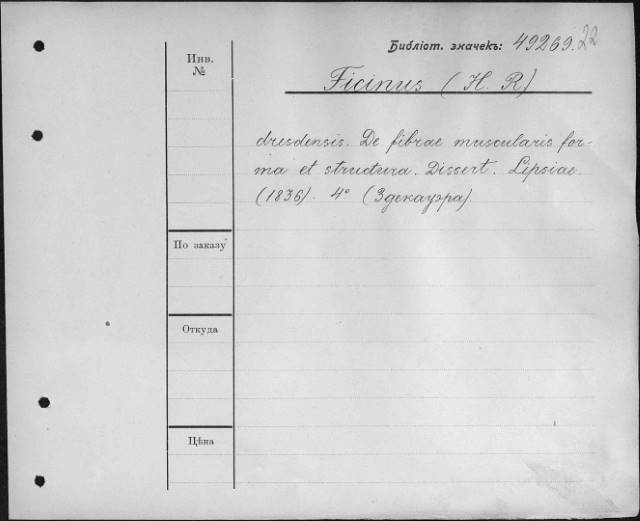 Библіот. значекъ: 49269.22
Инв.
№
Ficinus (H. R)
dresdensis. De fibrae muscularis for-
ma et structura. Dissert. Lipsiae.
(1836). 4° (Здекауэра).
По заказу
Откуда
Цѣна